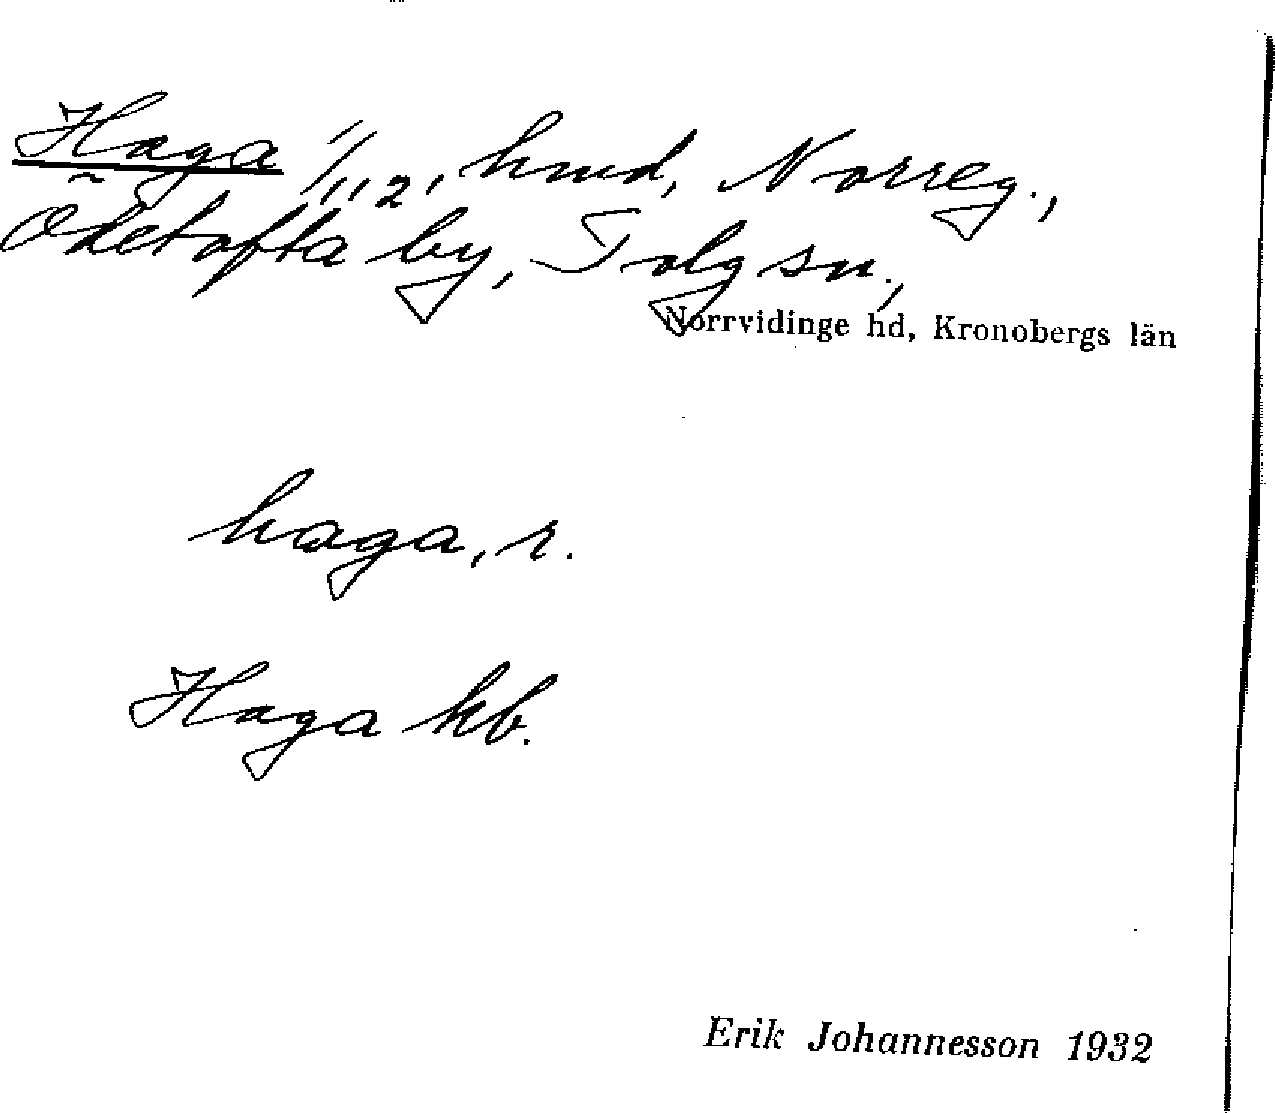 Haga 1/112, hmd, Norreg.,
Ödetofta by, Tolg sn.,
Norrvidinge hd, Kronobergs län
haga, r.
Haga kb.
Erik Johannesson 1932